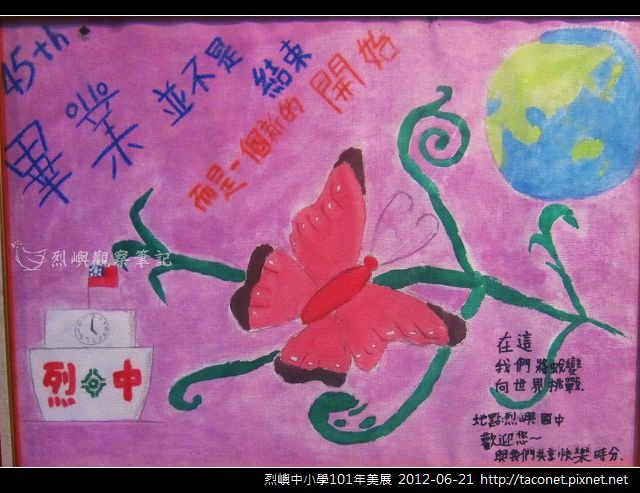 45th
畢業
並不是
結束
而是一個新的
開始
烈嶼觀察筆記
烈 中
在這
我們將蛻變
向世界挑戰.
地點:烈嶼國中
歡迎您~
與我們共享快樂時分.
烈嶼中小學101年美展 2012-06-21 http://taconet.pixnet.net